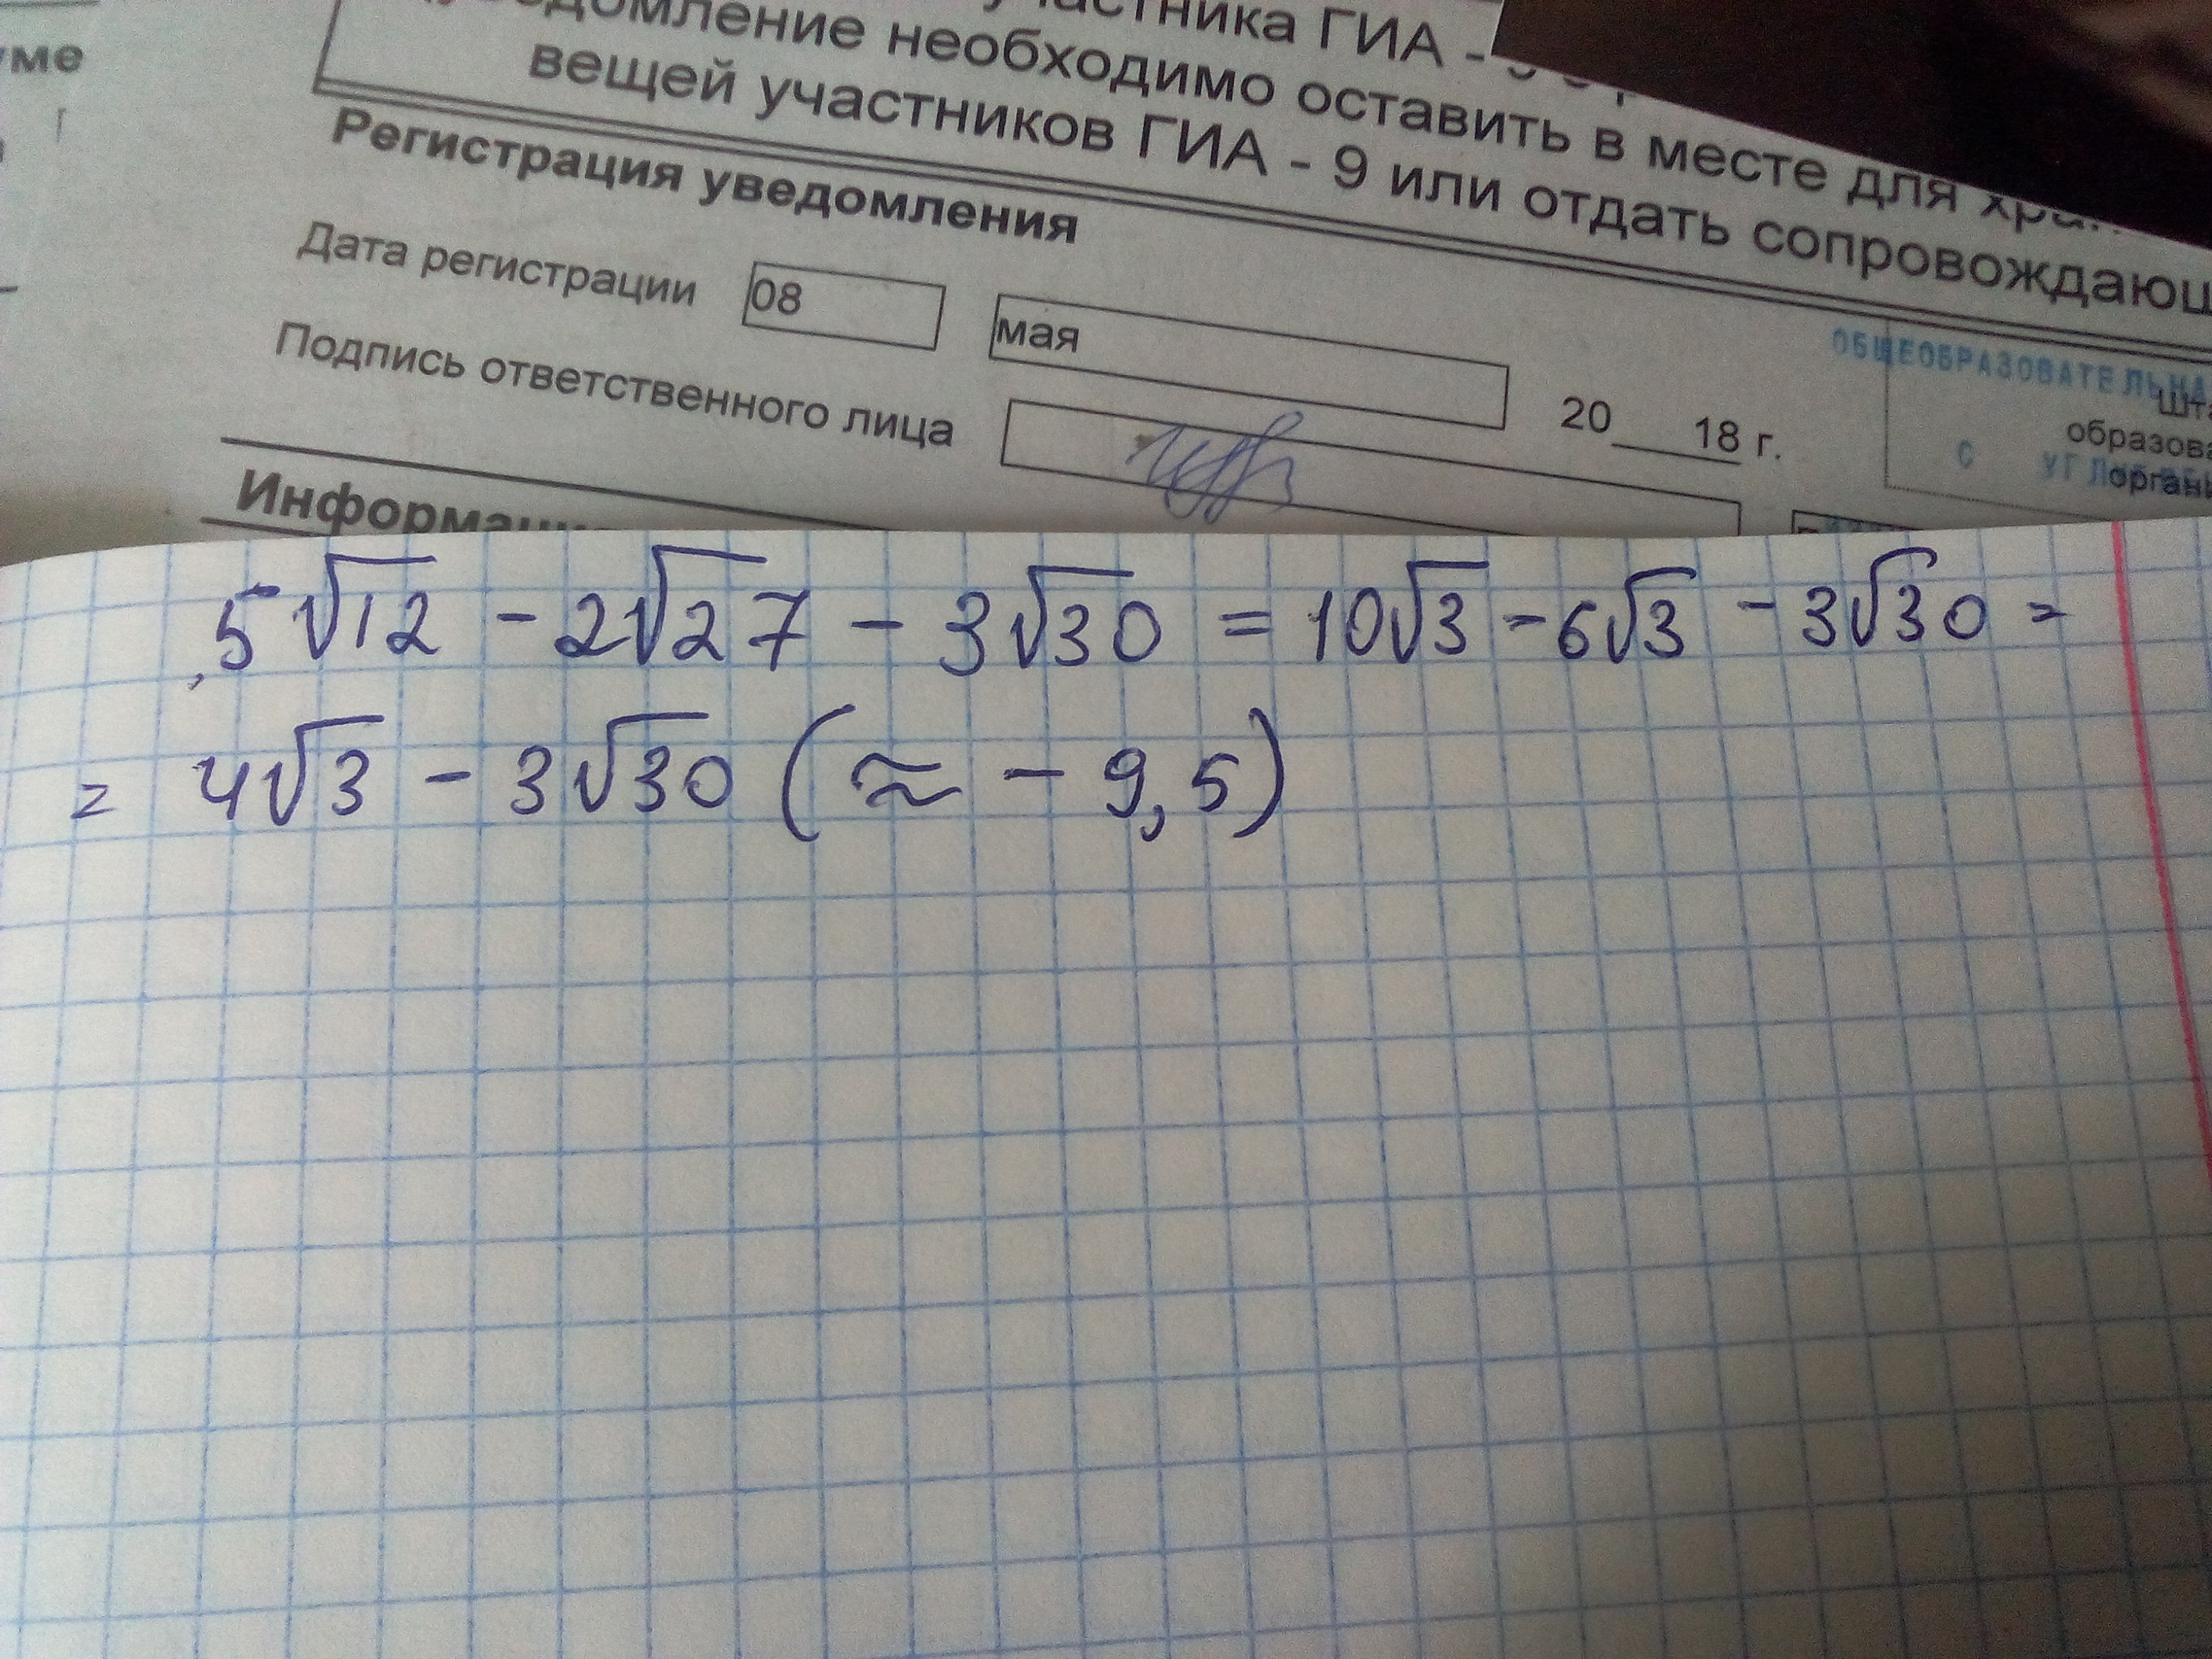 уме
участника ГИА -
домление необходимо оставить в месте для
вещей участников ГИА - 9 или отдать
Регистрация уведомления
Дата регистрации 08 мая 20 18 г.
Подпись ответственного лица
ОБЩЕОБРАЗОВАТЕЛЬНА
С
5√12 - 2√27 - 3√30 = 10√3 - 6√3 - 3√30 =
= 4√3 - 3√30 (≈ - 9,5)